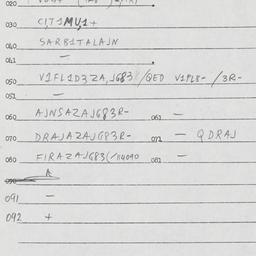 020
030 C,T1MU,1+
040 SARB1TALAJN
041 —
050 V1FL1D3ZA,J683/QED V1PL8- /3R-
051 —
060 AJNSAZAJ683R- 061 —
070 DRAJAZAJ683R- 071 — QDRAJ
080 FIRAZAJ683(/114090 081 —
090 A
091 —
092 +